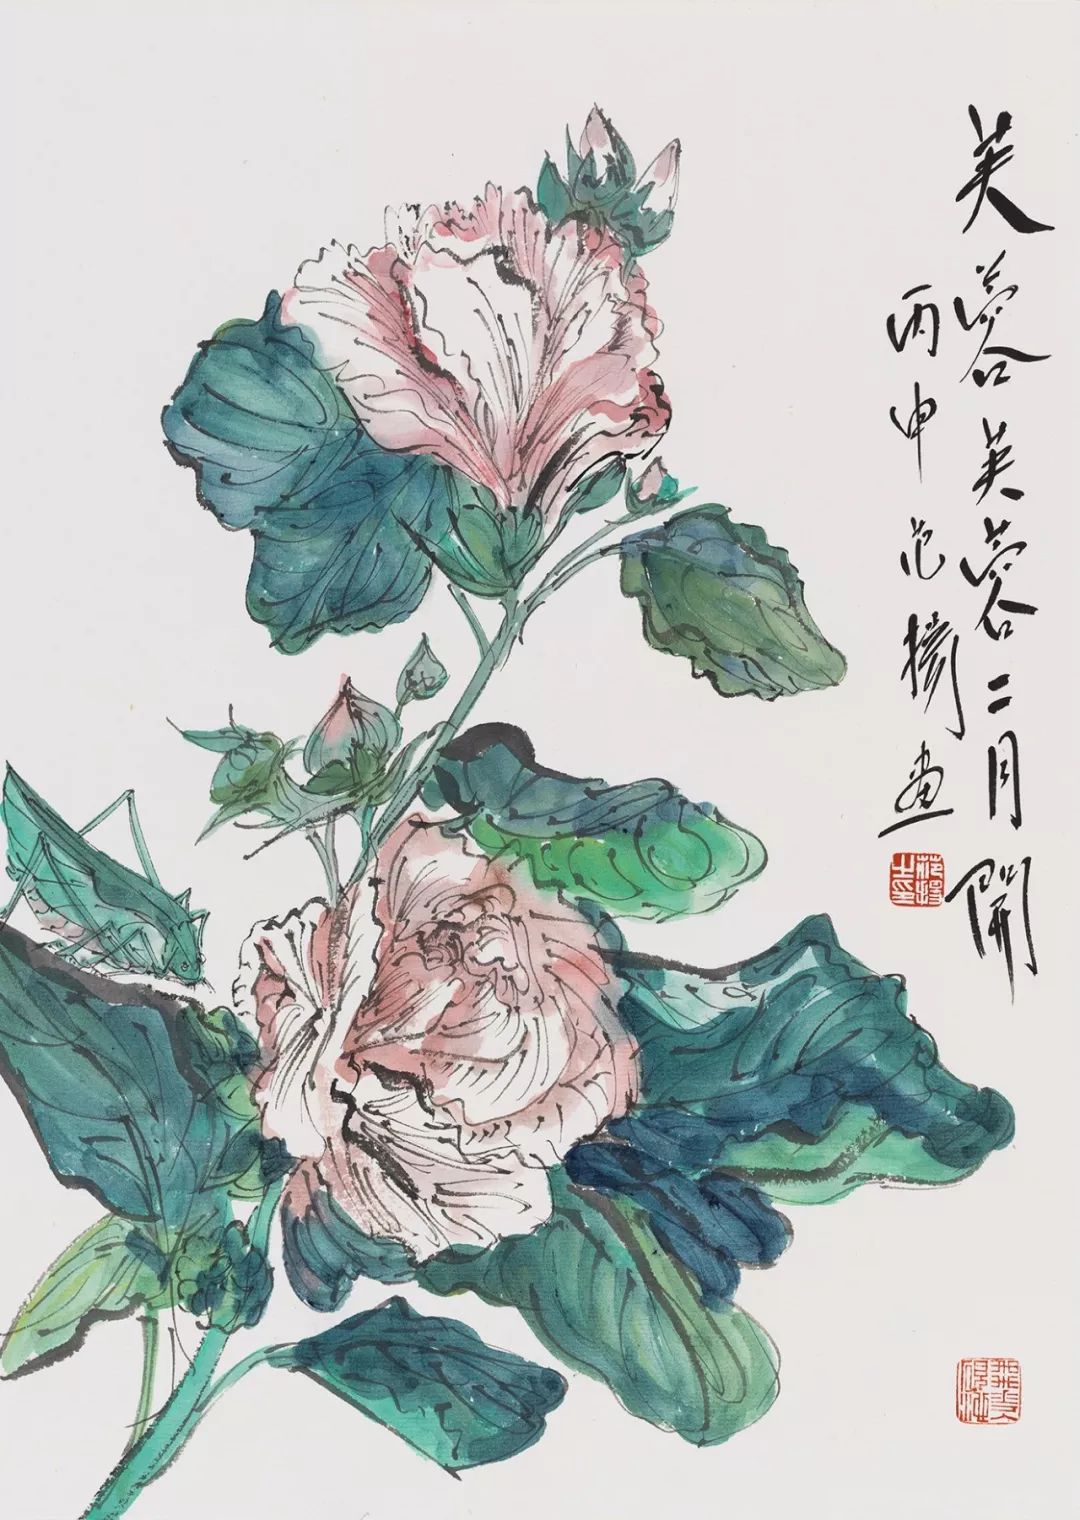 芙蓉芙蓉二月開
丙申 范 畫